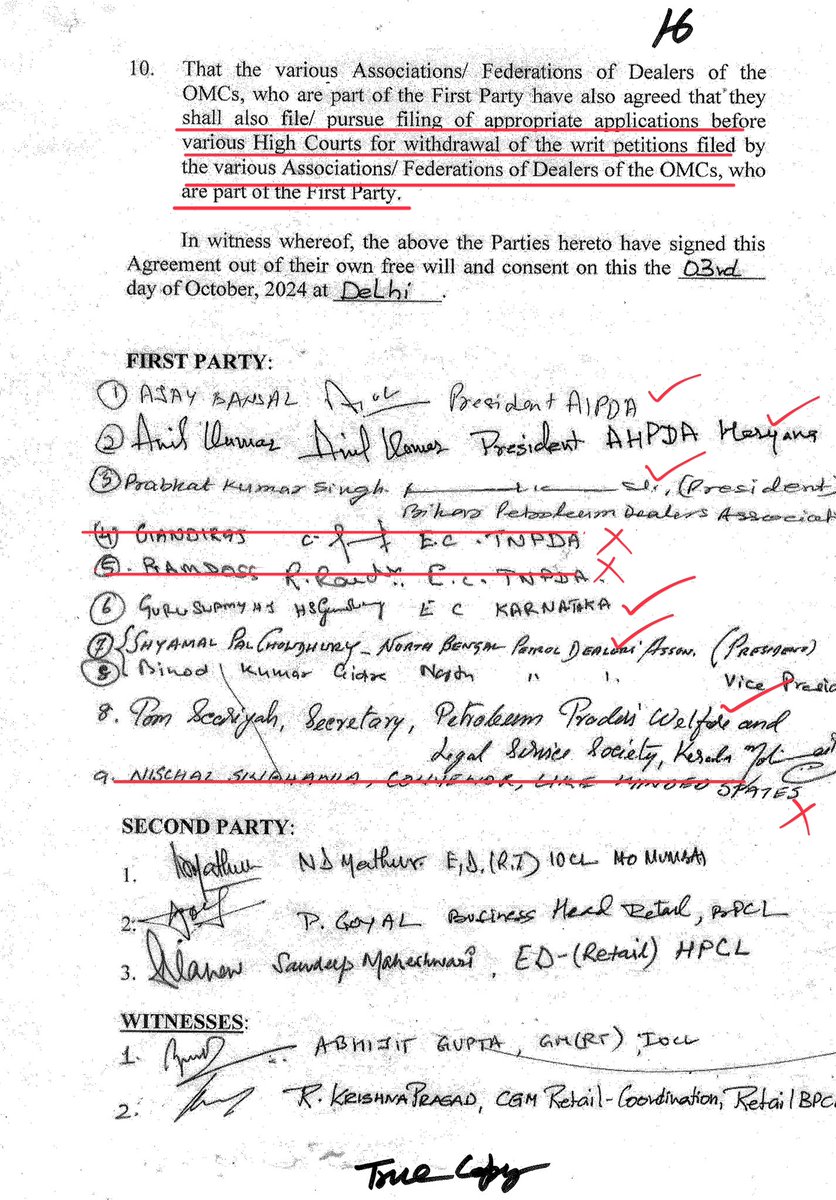 16
10. That the various Associations/ Federations of Dealers of the
OMCs, who are part of the First Party have also agreed that they
shall also file/ pursue filing of appropriate applications before
various High Courts for withdrawal of the writ petitions filed by
the various Associations/ Federations of Dealers of the OMCs, who
are part of the First Party.
In witness whereof, the above the Parties hereto have signed this
Agreement out of their own free will and consent on this the 03rd
day of October, 2024 at Delhi.
FIRST PARTY:
1 AJAY BANSAL President AIPDA
2 Anil Kumar Anil Kumar President AHPDA Haryana
3 Prabhat Kumar Singh (President)
Bihar Petroleum Dealers Associat
(4) E.C. TNPDA
(5). RAMDASS E.C. TNPDA.
6 GURUSWAMY HS E C KARNATAKA
7 SHYAMAL PAL CHOWDHURY - NORTH BENGAL PETROL DEALERS' ASSON. (PRESIDENT)
8 Binod Kumar North " " Vice Presid
8. Tom Secretary, Petroleum Traders Welfare and
Legal Service Society, Kerala
9. NISCHAL SINGHANIA, CONVENOR, LIKE MINDED STATES
SECOND PARTY:
1. ND Mathur E.D. (RT) IOCL MO MUMBAI
2. P. GOYAL Business Head Retail, BPCL
3. Sandeep Maheshwari, ED-(Retail) HPCL
WITNESSES:
1. ABHIJIT GUPTA, GM(RT), IOCL
2. R. KRISHNA PRASAD, CGM Retail-Coordination, Retail BPC
True Copy